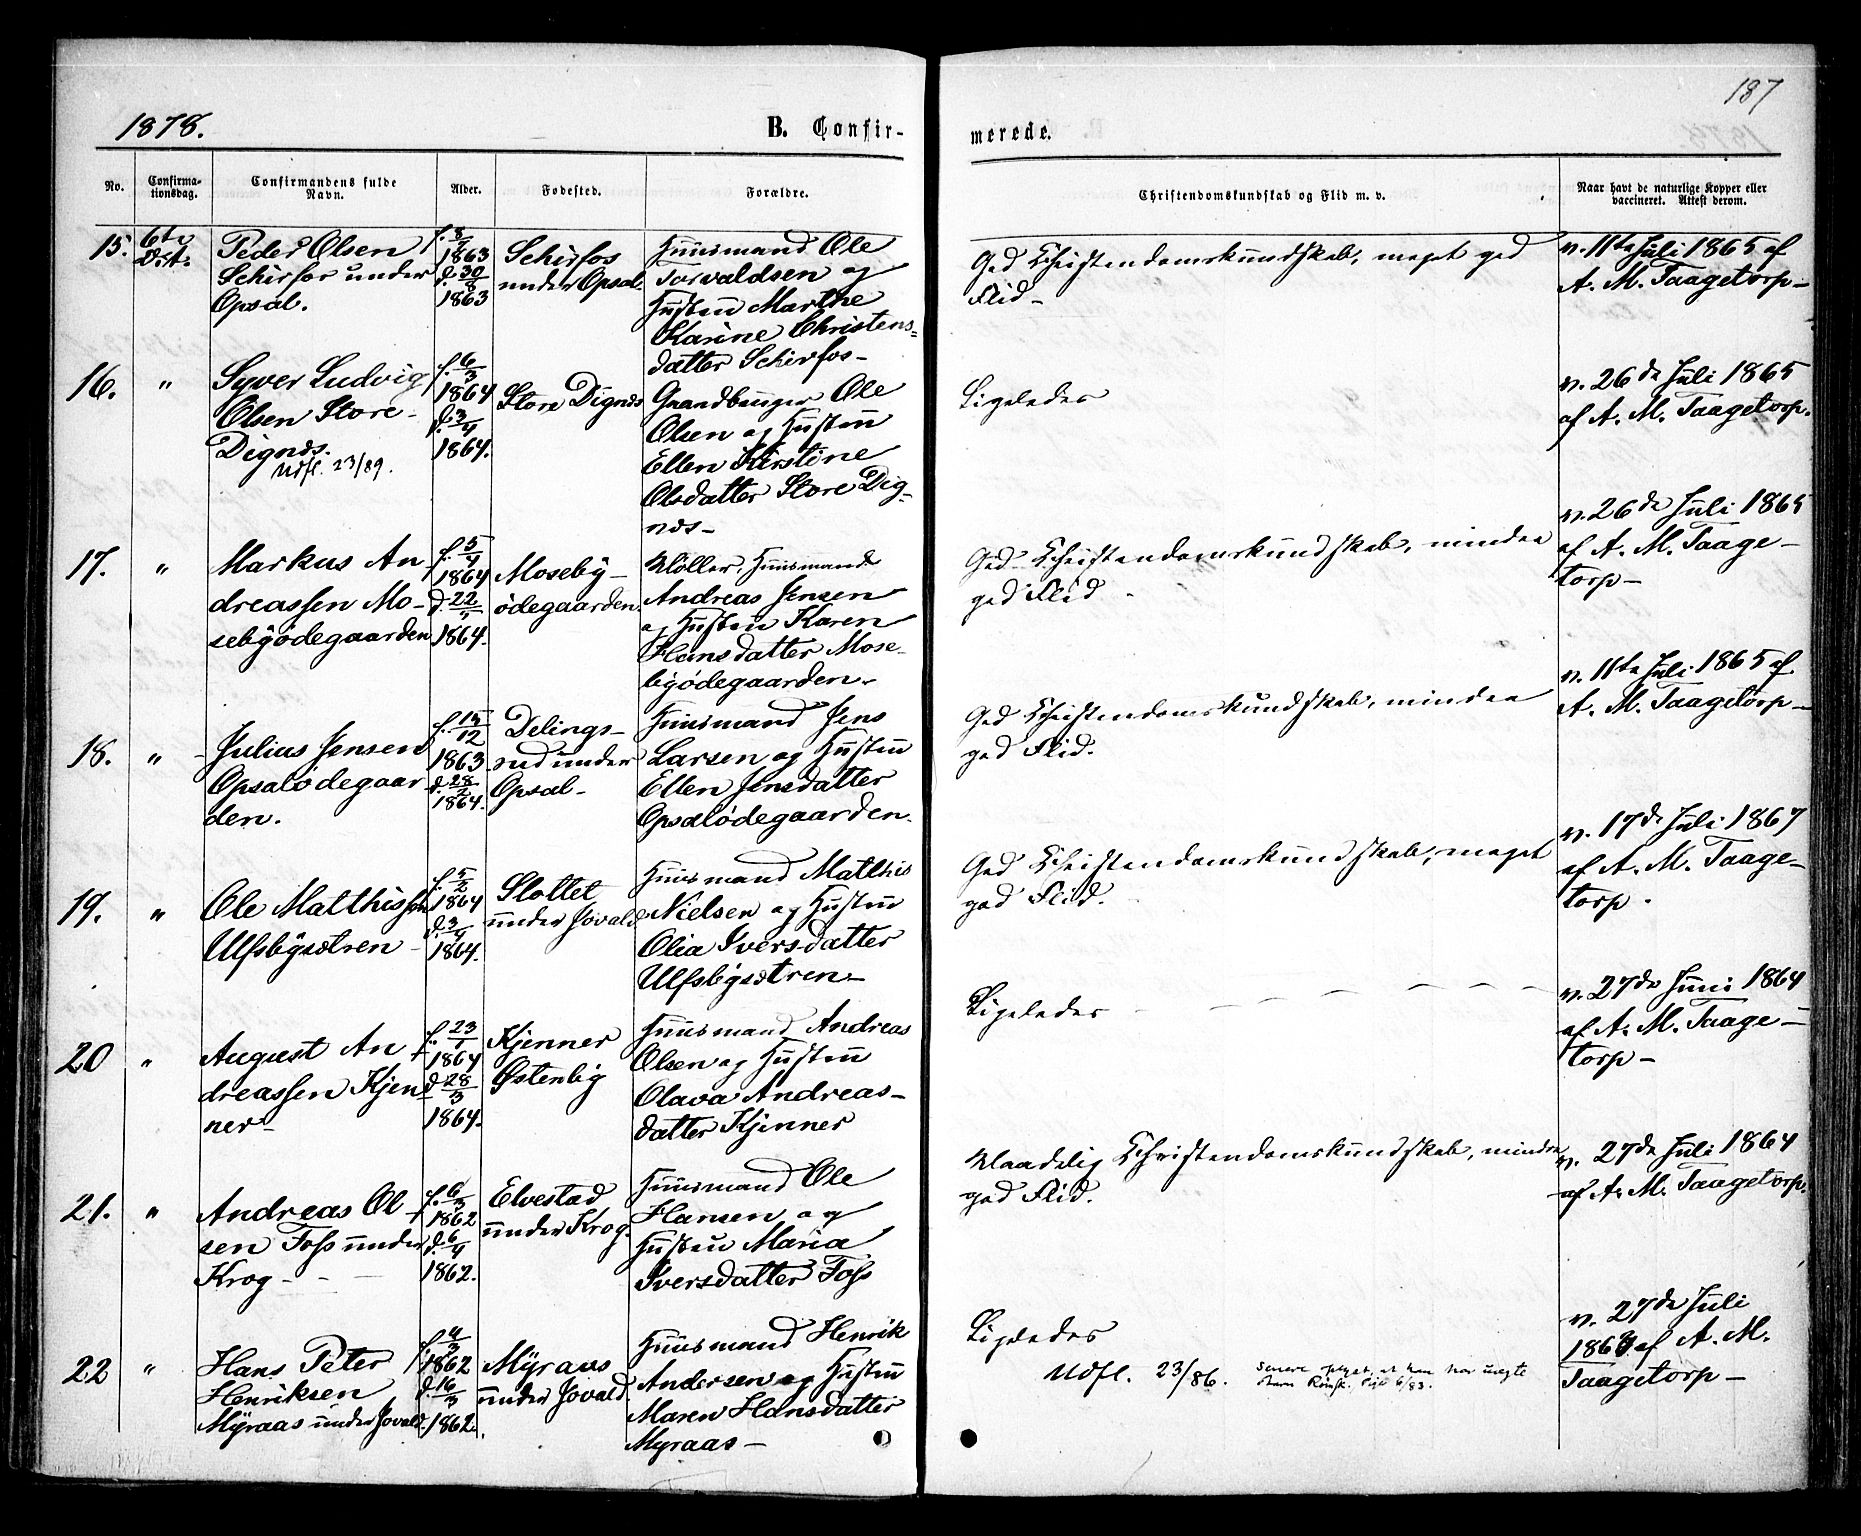 187
1878.
B. Confir-
merede.
No.
Confirma-
tionsdag.
Confirmandens fulde
Navn.
Alder.
Fødested.
Forældre.
Christendomskundskab og Flid m. v.
Naar havt de naturlige Kopper eller
vaccineret. Attest derom.
15. 6te
Oct.
Peder Olsen
Schirfos under
Opsal.
f. 8/7
1863
d. 30/8
1863
Schirfos
under Opsal.
Huusmand Ole
Torvaldsen og
Hustru Marthe
Karine Christens-
datter Schirfos-
God Christendomskundskab, meget god
Flid-
v. 11te Juli 1865 af
A. M. Taagetorp-
16. "
Syver Ludvig
Olsen Store-
Dignæs.
Udfl. 23/89.
f. 6/3
1864
d. 3/4
1864.
Store Dignæs
Gaardbruger Ole
Olsen og Hustru
Ellen Kirstine
Olsdatter Store Dig-
næs-
Ligeledes
v. 26de Juli 1865
af A. M. Taagetorp.
17. "
Markus An-
dreassen Mo-
sebyødegaarden
f. 5/4
1864
d. 22/5
1864.
Moseby-
ødegaarden.
Møller, Huusmand
Andreas Jensen
og Hustru Karen
Hansdatter Mose-
byødegaarden.
God Christendomskundskab, mindre
god Flid
v. 26de Juli 1865
af A. M. Taage-
torp-
18. "
Julius Jensen
Opsalødegaar-
den.
f. 15/12
1863
d. 28/2
1864.
Delings-
rud under
Opsal-
Huusmand Jens
Larsen og Hustru
Ellen Jensdatter
Opsalødegaarden.
God Christendomskundskab, mindre
god Flid.
v. 11te Juli 1865 af
A. M. Taagetorp-
19. "
Ole Matthissen
Ulfsbysætren-
f. 5/2
1864
d. 3/4
1864.
Slottet
under Jovald
Huusmand Mathis
Nielsen og Hustru
Olia Iversdatter
Ulfsbysætren-
God Christendomskundskab, meget
god Flid.
v. 17de Juli 1867
af A. M. Taage-
torp.
20 "
August An-
dreassen Kjen-
ner-
f. 23/1
1864
d. 28/3
1864.
Kjenner
Østenby
Huusmand Andreas
Olsen og Hustru
Olava Andreas-
datter Kjenner
Ligeledes
v. 27de Juni 1864
af A. M. Taage-
torp-
21. "
Andreas Ol-
sen Foss under
Krog-
f. 6/3
1862
d. 6/4
1862.
Elvestad
under Krog.
Huusmand Ole
Hansen og
Hustru Maria
Iversdatter Foss
Maadelig Christendomskundskab, mindre
god Flid.
v. 27de Juli 1864
af A. M. Taagetorp.
22 "
Hans Peter
Henriksen
Myraas under Jovald.
f. 4/3
1862
d. 16/3
1862.
Myraas
under Jovald.
Huusmand Henrik
Andersen og Hustru
Maren Hansdatter
Myraas-
Ligeledes
Udfl. 23/86. senere oplyst, at han har uægte
barn 6/83.
v. 27de Juli
af A. M.
Taagetorp-